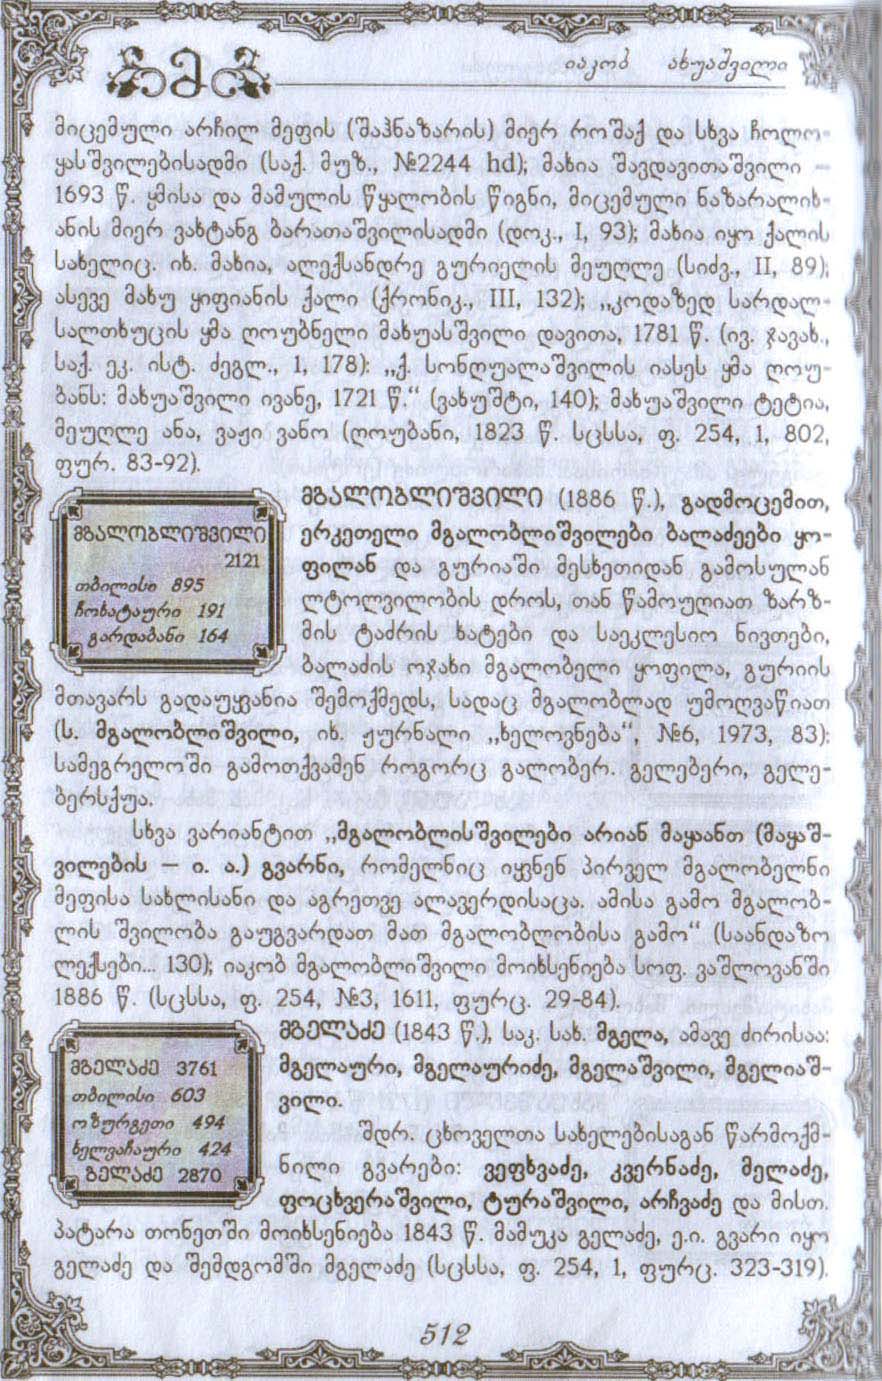 მ
იაკობ ახუაშვილი
მიცემული არჩილ მეფის (შაჰნაზარის) მიერ როშაქ და სხვა ჩოლო-
ყასშვილებისადმი (საქ. მუზ., №2244 hd); მახია შავდავითაშვილი –
1693 წ. ყმისა და მამულის წყალობის წიგნი, მიცემული ნაზარალიხ-
ანის მიერ ვახტანგ ბარათაშვილისადმი (დოკ., I, 93); მახია იყო ქალის
სახელიც. იხ. მახია, ალექსანდრე გურიელის მეუღლე (სიძვ., II, 89);
ასევე მახუ ყიფიანის ქალი (ქრონიკ., III, 132); „კოდაზედ სარდალ-
სალთხუცის ყმა ღოუბნელი მახუასშვილი დავითა, 1781 წ. (ივ. ჯავახ.,
საქ. ეკ. ისტ. ძეგლ., 1, 178): „ქ. სონღუალაშვილის იასეს ყმა ღოუ-
ბანს: მახუაშვილი ივანე, 1721 წ.“ (ვახუშტი, 140); მახუაშვილი ტეტია,
მეუღლე ანა, ვაჟი ვანო (ღოუბანი, 1823 წ. სცსსა, ფ. 254, 1, 802,
ფურ. 83-92).
მგალობლიშვილი
2121
თბილისი 895
ჩოხატაური 191
გარდაბანი 164
მგალობლიშვილი (1886 წ.), გადმოცემით,
ერკეთელი მგალობლიშვილები ბალაძეები ყო-
ფილან და გურიაში მესხეთიდან გამოსულან
ლტოლვილობის დროს, თან წამოუღიათ ზარზ-
მის ტაძრის ხატები და საეკლესიო ნივთები,
ბალაძის ოჯახი მგალობელი ყოფილა, გურიის
მთავარს გადაუყვანია შემოქმედს, სადაც მგალობლად უმოღვაწიათ
(ს. მგალობლიშვილი, იხ. ჟურნალი „ხელოვნება“, №6, 1973, 83):
სამეგრელოში გამოთქვამენ როგორც გალობერ. გელებერი, გელე-
ბერსქუა.
სხვა ვარიანტით „მგალობლისშვილები არიან მაყაანთ (მაყაშ-
ვილების – ი. ა.) გვარნი, რომელნიც იყვნენ პირველ მგალობელნი
მეფისა სახლისანი და აგრეთვე ალავერდისაცა. ამისა გამო მგალობ-
ლის შვილობა გაუგვარდათ მათ მგალობლობისა გამო“ (საანდაზო
ლექსები... 130); იაკობ მგალობლიშვილი მოიხსენიება სოფ. ვაშლოვანში
1886 წ. (სცსსა, ფ. 254, №3, 1611, ფურც. 29-84).
მგელაძე 3761
თბილისი 603
ოზურგეთი 494
ხელვაჩაური 424
გელაძე 2870
მგელაძე (1843 წ.), საკ. სახ. მგელა, ამავე ძირისაა:
მგელაური, მგელაურიძე, მგელაშვილი, მგელიაშ-
ვილი.
შდრ. ცხოველთა სახელებისაგან წარმოქმ-
ნილი გვარები: ვეფხვაძე, კვერნაძე, მელაძე,
ფოცხვერაშვილი, ტურაშვილი, არჩვაძე და მისთ.
პატარა თონეთში მოიხსენიება 1843 წ. მამუკა გელაძე, ე.ი. გვარი იყო
გელაძე და შემდგომში მგელაძე (სცსსა, ფ. 254, 1, ფურც. 323-319).
512